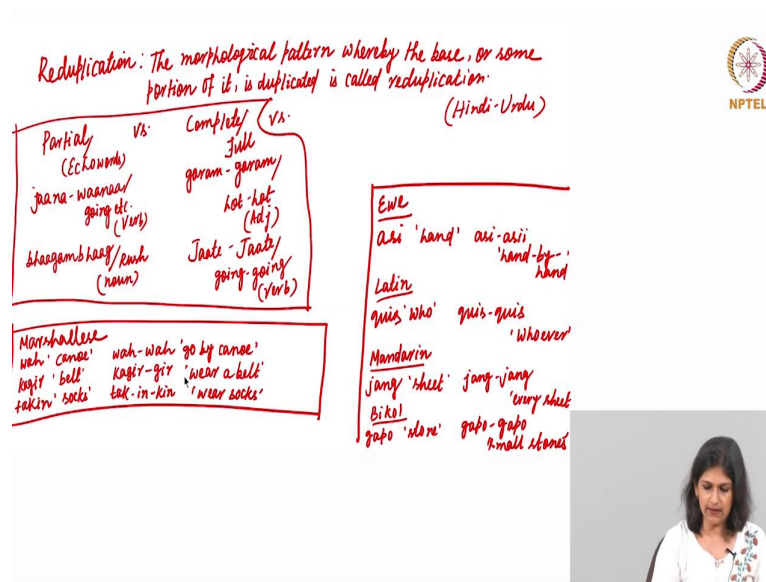 Reduplication: The morphological pattern whereby the base, or some
portion of it, is duplicated is called reduplication.
(Hindi-Urdu)
NPTEL
Partial/ vs. Complete/ vs.
(Echowords) Full
jaana-waanaa/
going etc.
(Verb)
bhaagambhaag/Rush
(noun)
garam-garam/
hot-hot
(Adj)
Jaate-Jaate/
going-going
(Verb)
Marshallese
wah 'canoe' wah-wah 'go by canoe'
kagir 'belt' kagir-gir 'wear a belt'
takin 'socks' tak-in-kin 'wear socks'
Ewe
asi 'hand' asi-asii
'hand-by-
hand
Latin
quis 'who' quis-quis
'whoever'
Mandarin
jang 'sheet' jang-jang
'every sheet
Bikol
gapo 'stone' gapo-gapo
small stones